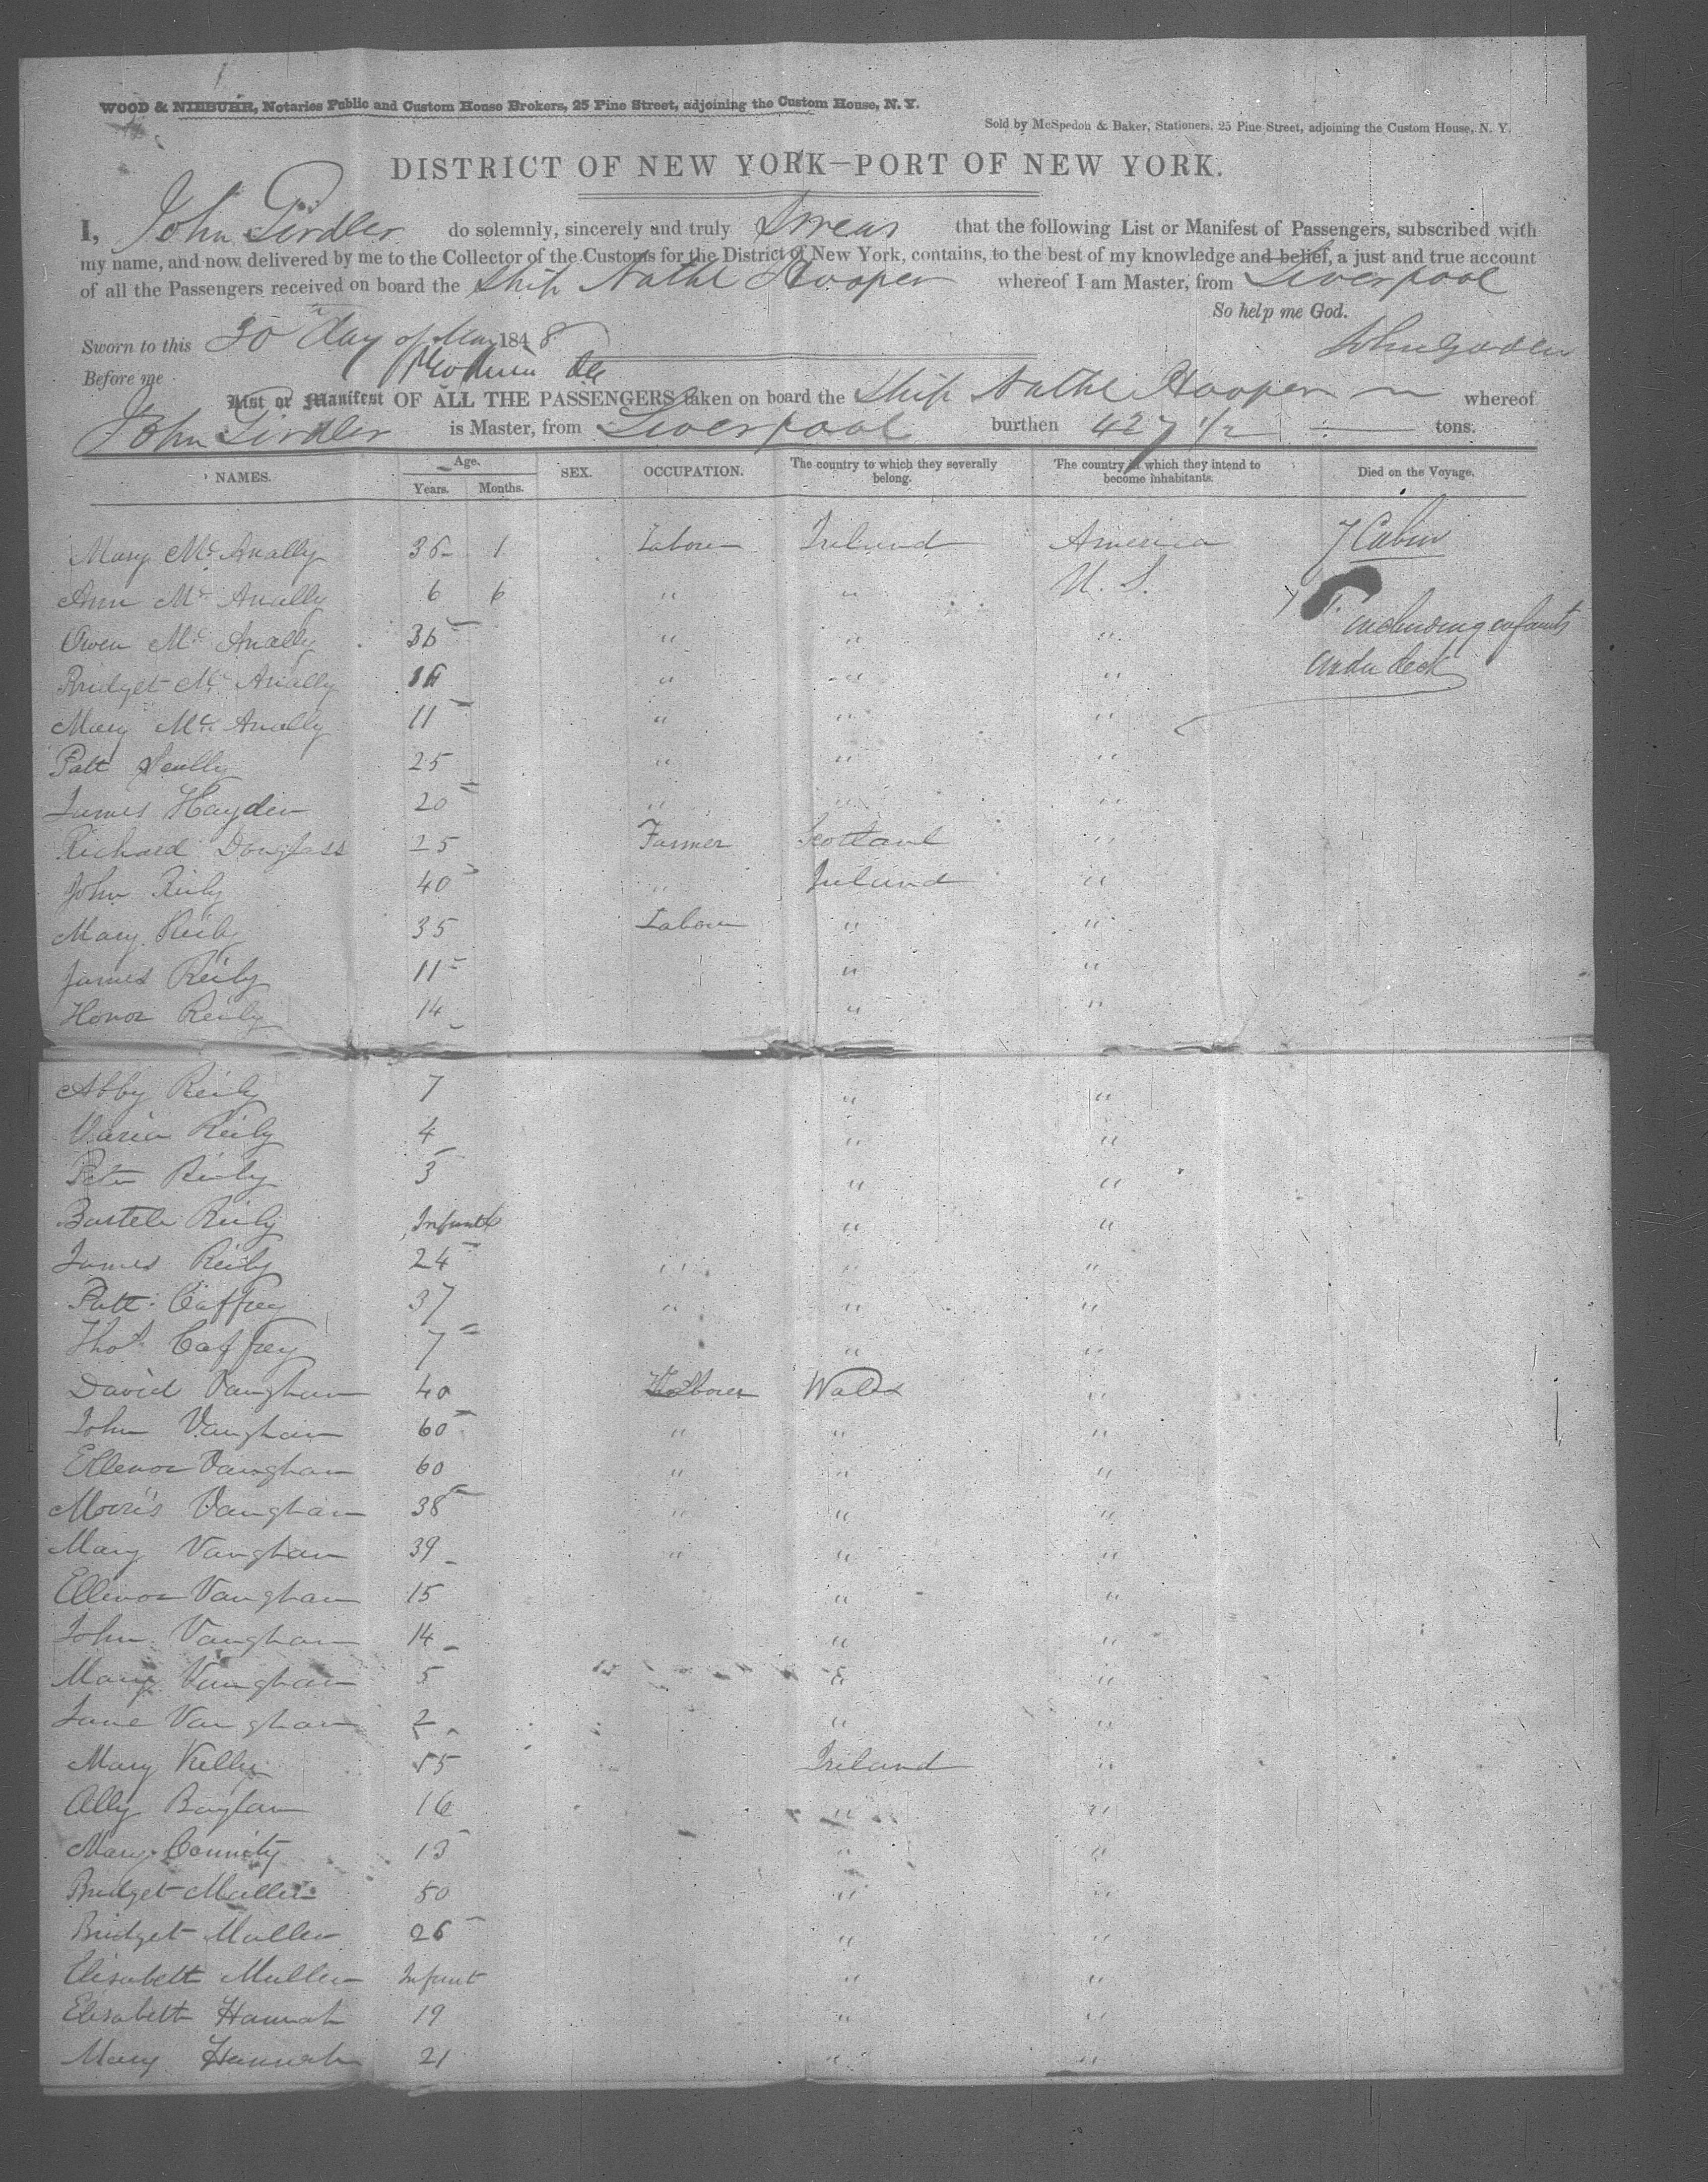 WOOD & NIEBUHR, Notaries Public and Custom House Brokers, 25 Pine Street, adjoining the Custom House, N. Y.
Sold by McSpedon & Baker, Stationers, 25 Pine Street, adjoining the Custom House, N. Y.
DISTRICT OF NEW YORK—PORT OF NEW YORK.
I, John Girdler do solemnly, sincerely and truly Swear that the following List or Manifest of Passengers, subscribed with
my name, and now delivered by me to the Collector of the Customs for the District of New York, contains, to the best of my knowledge and belief, a just and true account
of all the Passengers received on board the Ship Nathl Hooper whereof I am Master, from Liverpool
So help me God.
Sworn to this 30th day of May 1848
Before me
List or Manifest OF ALL THE PASSENGERS taken on board the Ship Nathl Hooper whereof
John Girdler is Master, from Liverpool burthen 427 1/2 tons.
NAMES. Age. Years. Months. SEX. OCCUPATION. The country to which they severally belong. The country in which they intend to become inhabitants. Died on the Voyage.
Mary McAnally 36 1 Laborer Ireland America 7 Cabin
Ann McAnally 6 6 " " U. S.
Owen McAnally 36 " " " including infants
Bridget McAnally " " " under deck
Mary McAnally 11 " " "
Patt Scully 25 " " "
James Hayden 20 " " "
Richard Douglass 25 Farmer Scotland "
John Reily 40 " Ireland "
Mary Reily 35 Laborer " "
James Reily 11 " "
Honor Reily 14 " "
Abby Reily 7 " "
Maria Reily 4 " "
Peter Reily 3 " "
Reily Infant " "
James Reily 24 " " "
Patt Caffrey 37 " " "
Thos Caffrey 7 " "
David Vaughan 40 Laborer Wales "
John Vaughan 60 " " "
Ellenor Vaughan 60 " " "
Morris Vaughan 38 " " "
Mary Vaughan 39 " " "
Ellenor Vaughan 15 " "
John Vaughan 14 " "
Mary Vaughan 5 " "
Jane Vaughan 2 " "
Mary Kelly 55 Ireland "
Ally Boylan 16 " "
Mary 13 " "
Bridget Mullen 50 " "
Bridget Mullen 26 " "
Elisabett Mullen Infant " "
Elisabett Hannah 19 " "
Mary Hannah 21 " "